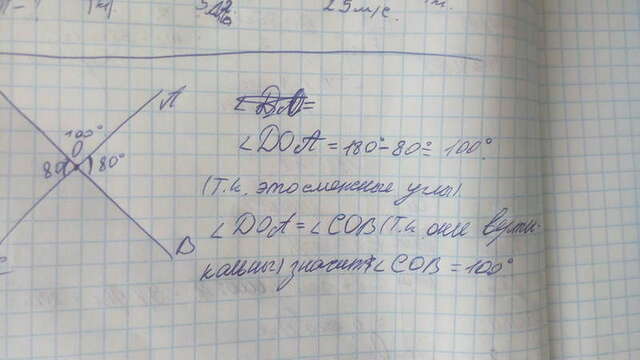 29 м/с.
A
100°
O
80° 80°
B
C
∠DOA = 180° - 80° = 100°.
(т.к. это смежные углы)
∠DOA = ∠COB (т.к. они верти-
кальны) значит ∠COB = 100°